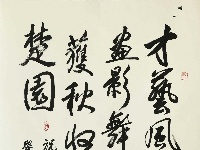 才藝風
畫影舞
獲秋收
楚園